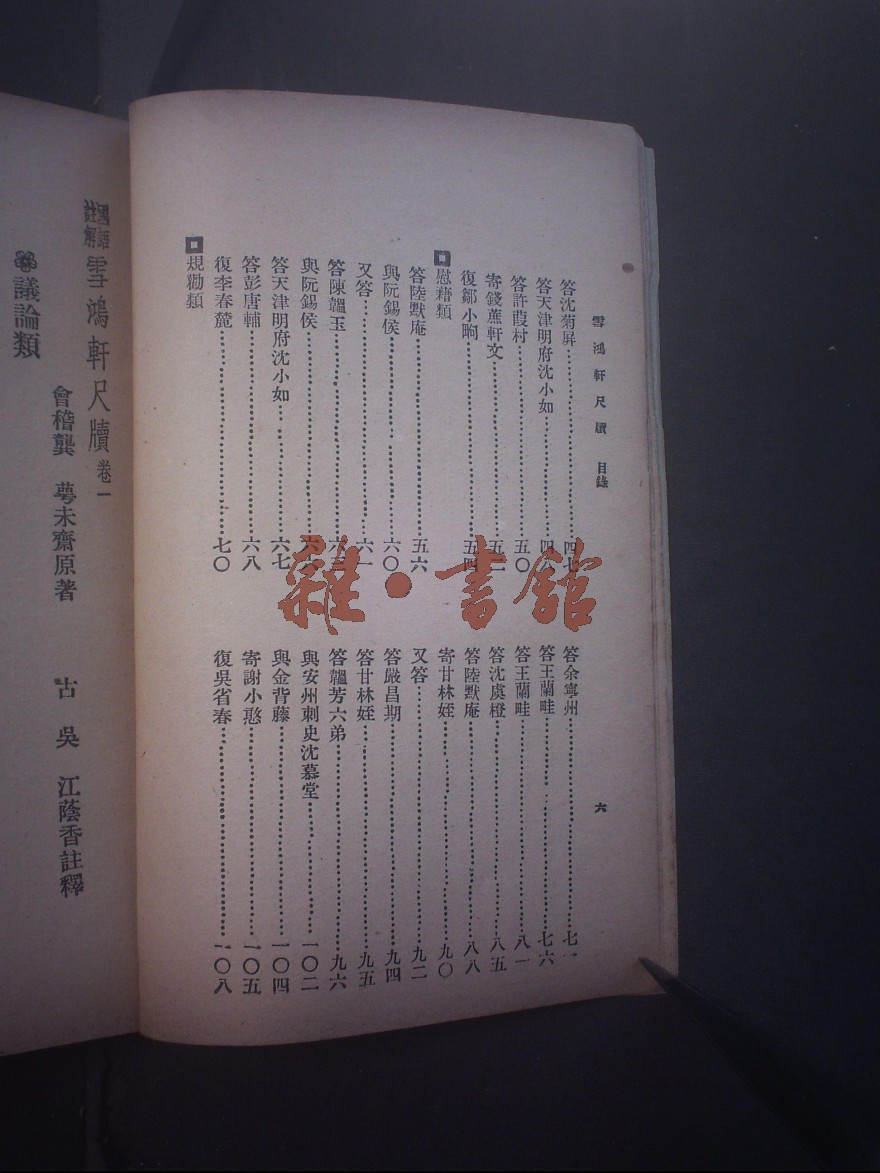 雪鴻軒尺牘 目錄
六
答沈菊屏 四七
答天津明府沈小如 四八
答許葭村 五〇
寄錢蕉軒文 五二
復鄒小眴 五四
慰藉類
答陸默庵 五六
與阮錫侯 六〇
又答 六一
答陳韞玉
與阮錫侯
答天津明府沈小如 六七
答彭唐輔 六八
復李春麓 七〇
規勸類
答余寧州 七一
答王蘭畦 七六
答王蘭畦 八一
答沈虞橙 八五
答陸默庵 八八
寄甘林姪 九〇
又答 九二
答嚴昌期 九四
答甘林姪 九五
答韞芳六弟 九六
與安州刺史沈慕堂 一〇二
與金背藤 一〇四
寄謝小憨 一〇五
復吳省春 一〇八
國語註解 雪鴻軒尺牘 卷一
會稽龔 萼未齋原著 古吳 江蔭香註釋
議論類
雜·書館